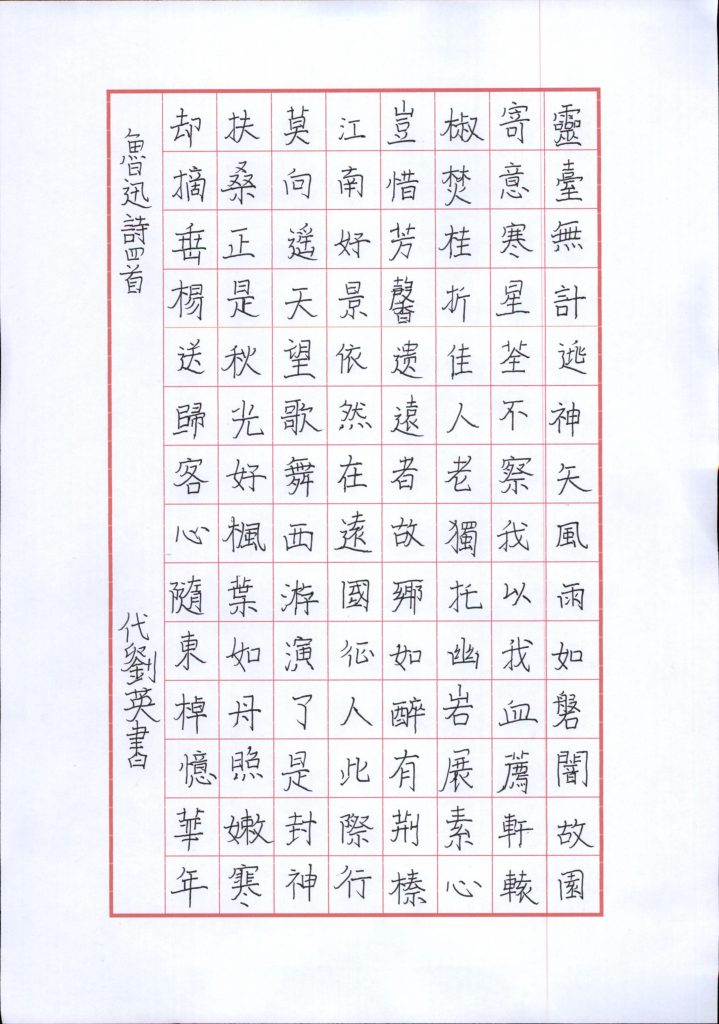 靈臺無計逃神矢風雨如磐闇故園
寄意寒星荃不察我以我血薦軒轅
椒焚桂折佳人老獨托幽岩展素心
豈惜芳馨遗遠者故鄉如醉有荆榛
江南好景依然在遠國征人此際行
莫向遥天望歌舞西游演了是封神
扶桑正是秋光好楓葉如丹照嫩寒
却摘垂楊送歸客心隨東棹憶華年
魯迅詩四首
代劉英書